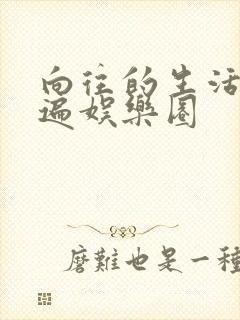 向往的生活
遍娱乐圈
磨难也是一种